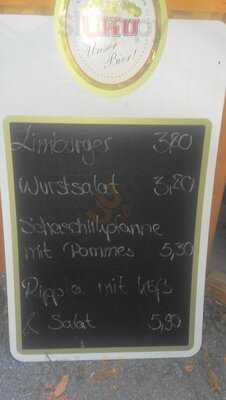 Unser
Bier!
Limburger 3,20
Wurstsalat 3,20
Schaschlikpfanne
mit Pommes 5,30
Ripple mit
& Salat 5,90